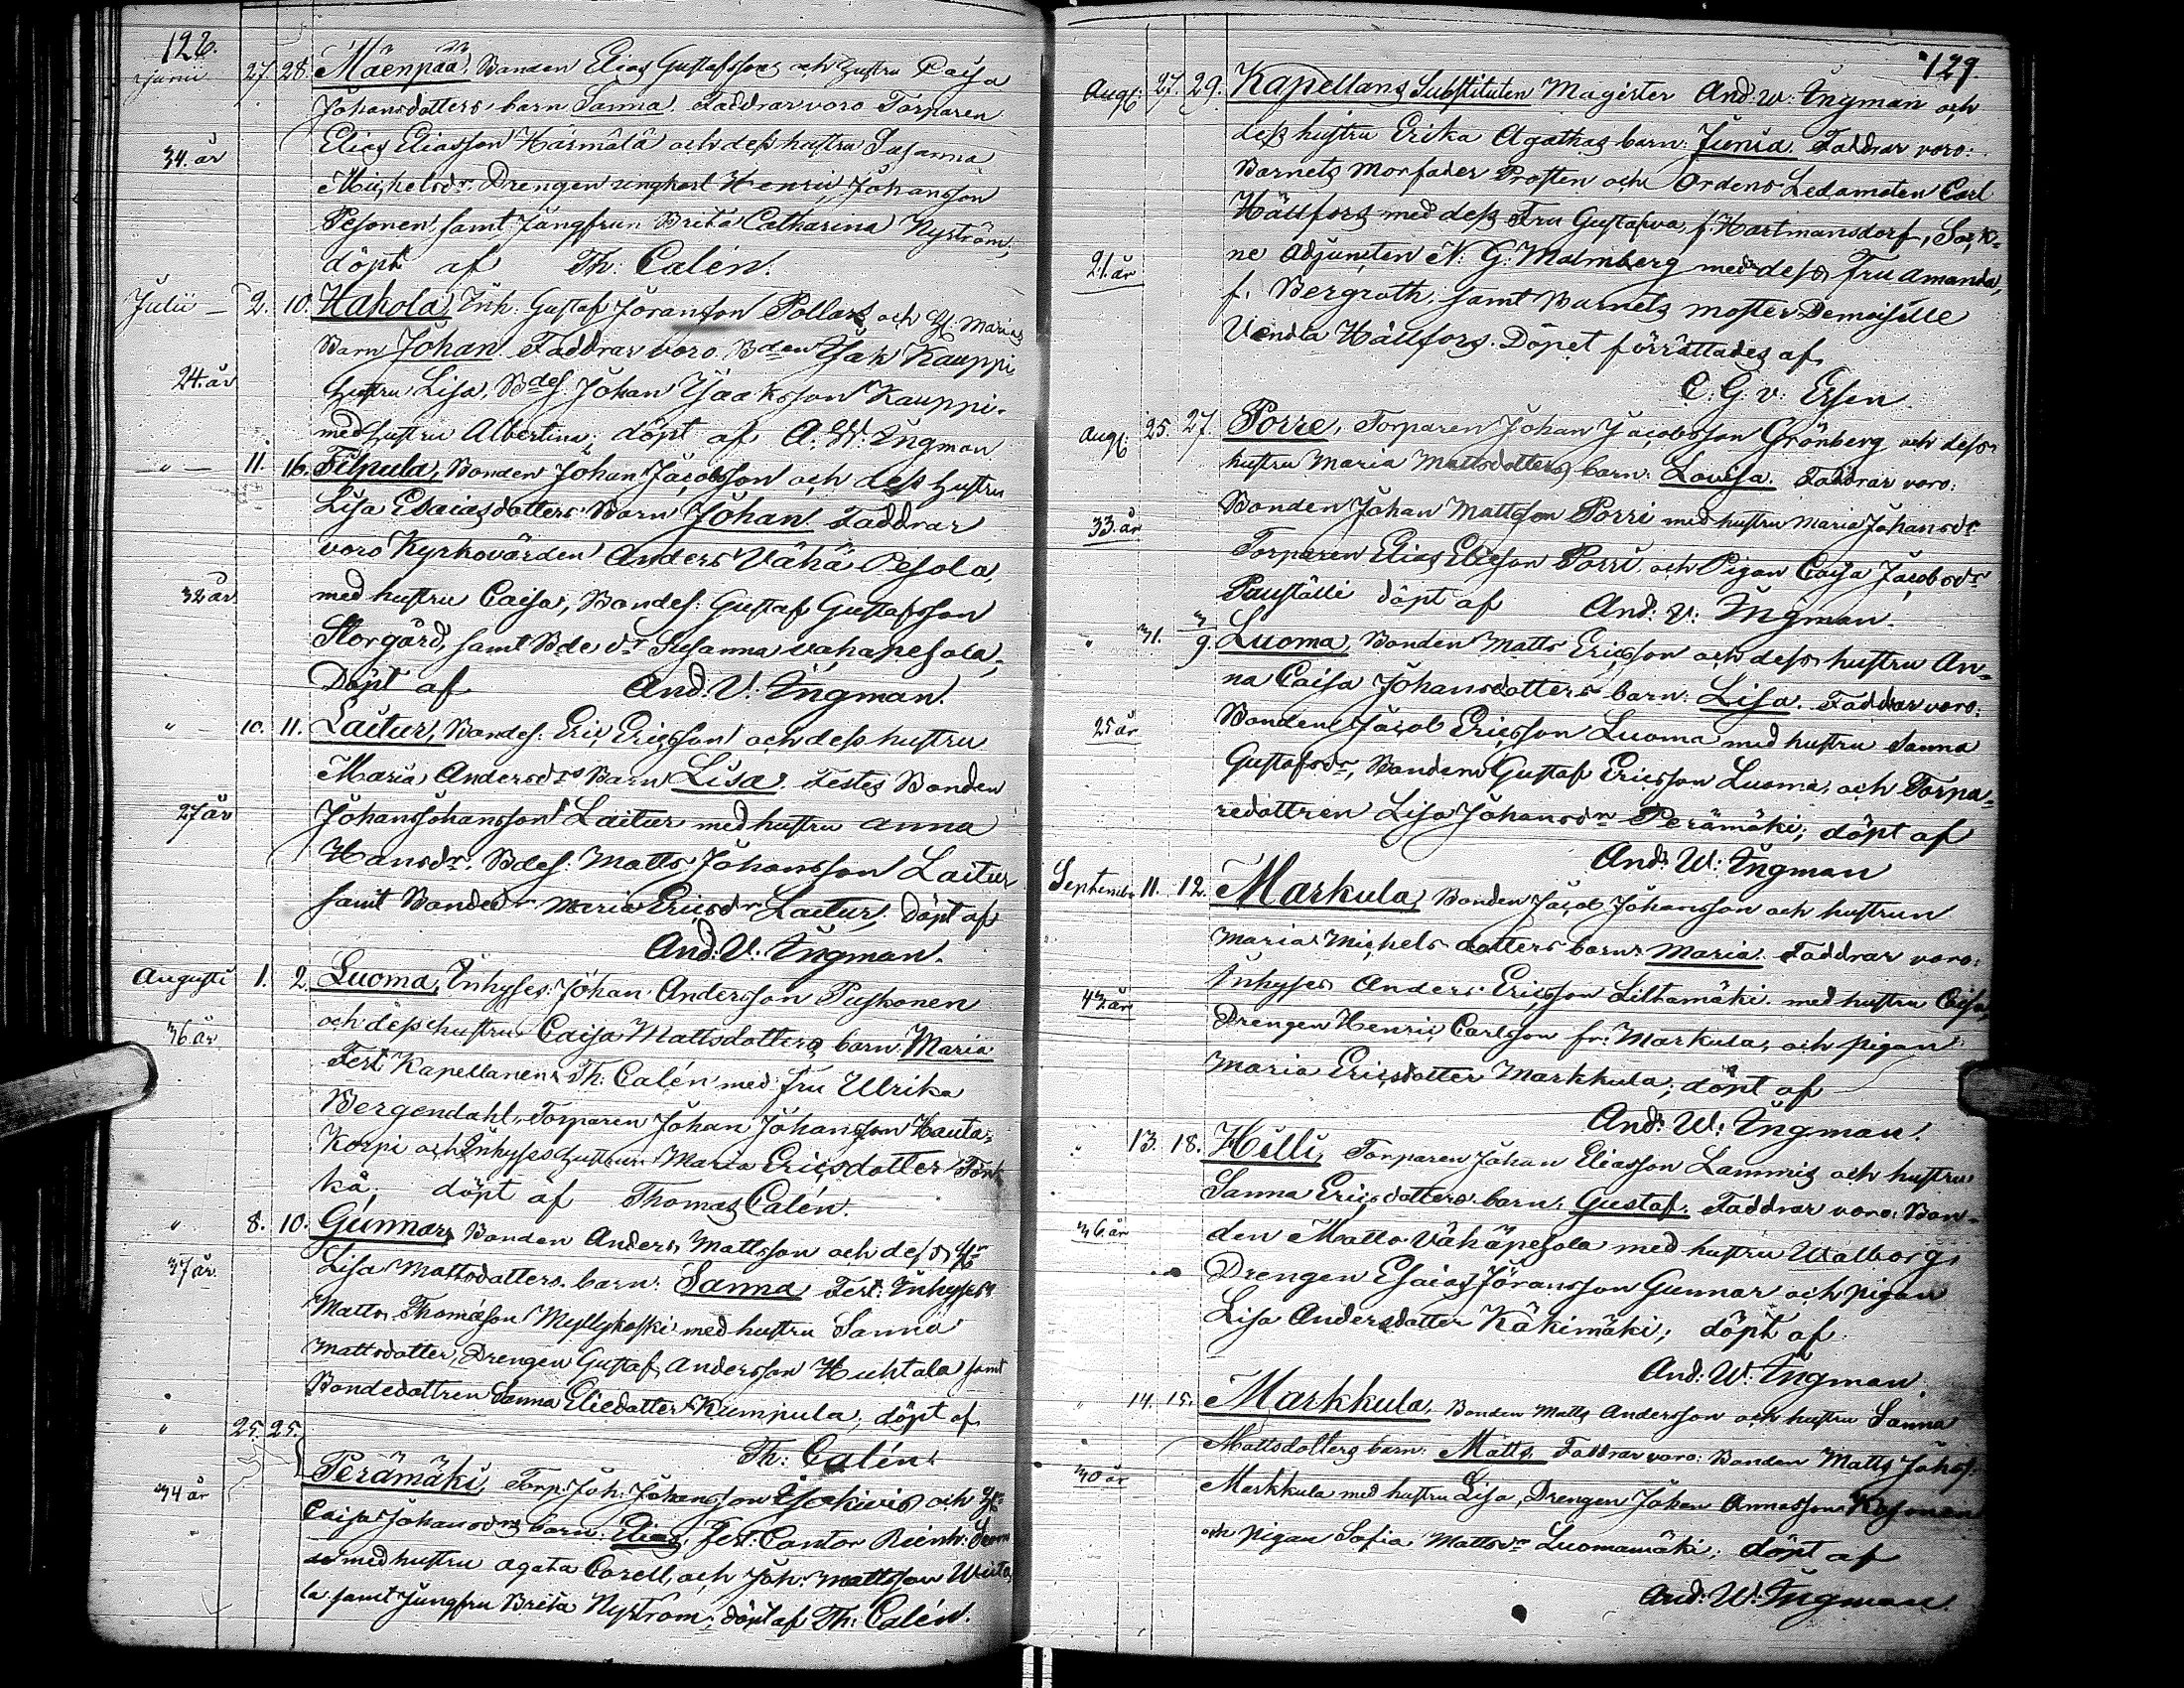 128.
Junii 27. 28. Mäenpää, Bonden Elias Gustafsson och hustru Caisa
Johansdotters barn Sanna. Faddrar voro Torparen
34. år Elias Eliasson Härmälä och dess hustru Susanna
Michelsdr. Drengen ungkarl Henric Johansson
Pesonen, samt Jungfrun Brita Catharina Nyström,
döpt af Th: Calén.
Julii — 2. 10. Hakola, Inh: Gustaf Jöransson Pollars och H. Marias
Barn Johan. Faddrar voro Bden Isak Kauppi
24. år hustru Lisa, Bdes. Johan Isaaksson Kauppi
med hustru Albertina; döpt af A. W. Ingman
— " — 11. 16. Filpula, Bonden Johan Jacobsson och dess hustru
Lisa Esaiasdotters Barn Johan. Faddrar
voro Kyrkovärden Anders Vähä Pesola,
32 år med hustru Caisa, Bondes: Gustaf Gustafsson
Storgård, samt Bde dr Susanna Vähäpesola,
Döpt af And: V: Ingman.
" — 10. 11. Laitur, Bondes: Eric Ericsson och dess hustru
Maria Andersdrs Barn Lisa. Testes Bonden
27 år Johan Johansson Laitur med hustru Anna
Hansdr. Bdes: Matts Johansson Laitur
samt Bondedr Maria Ericsdr Laitur, Döpt af
And: V: Ingman.
Augusti 1. 2. Luoma, Inhyses: Johan Andersson Puskonen
36 år och dess hustru Caisa Mattsdotters barn Maria
Test: Kapellanen Th: Calén med Fru Ulrika
Bergendahl, Torparen Johan Johansson Hauta-
korpi och Inhyses hustrun Maria Ericsdotter
kä, döpt af Thomas Calén.
" 8. 10. Gunnar, Bonden Anders Mattsson och dess
37 år Lisa Mattsdotters barn: Sanna Test: Inhyses
Matts Thomasson Myllykoski med hustru Sanna
Mattsdotter, Drengen Gustaf Andersson Huhtala samt
Bondedottren Sanna Eliedotter Kumpula; döpt af
" 25. 25. Th: Calén.
Perämäki, Torp: Joh: Johansson och
34 år Caisa Johansdrs barn: Elias, Test: Cantor
med hustru Agata Corell, och Joh: Mattsson
la samt Jungfru Brita Nyström, döpt af Th: Calén.
129.
Aug: 27. 29. Kapellans Substituten Magister And: W: Ingman och
dess hustru Erika Agathas barn: Junia. Faddrar voro:
Barnets Morfader Prosten och Ordens Ledamoten Carl
Hällfors med dess Fru Gustafva, f: Hartmansdorf, Sock-
21. år ne Adjuncten N: G: Malmberg med dess Fru Amanda,
f: Bergroth, samt Barnets moster Demoiselle
Vendla Hällfors. Döpet förrättades af
C: G: v: Essen
Aug: 25. 27. Porre, Torparen Johan Jacobsson Grönberg och dess
hustru Maria Mattsdotters barn: Lovisa. Faddrar voro:
33. år Bonden Johan Mattsson Porri med hustru Maria Johansdr
Torparen Elias Eliesson Porri, och Pigan Caisa Jacobsdr
döpt af And: V: Ingman.
" 31. 3/9 Luoma, Bonden Matts Ericsson och dess hustru An-
na Caisa Johansdotters barn: Lisa. Faddrar voro:
25 år Bonden Jacob Ericsson Luoma med hustru Sanna
Gustafsdr, Bonden Gustaf Ericsson Luoma, och Torpa-
redottren Lisa Johansdr Perämäki; döpt af
And: W: Ingman
September 11. 12. Markula, Bonden Jacob Johansson och hustrun
Maria Michels dotters barn: Maria. Faddrar voro:
42 år Inhyses Anders Ericsson Liltamäki med hustru Caisa,
Drengen Henric Carlsson fr: Markula, och pigan
Maria Ericsdotter Markkula; döpt af
And: W: Ingman.
" 13. 18. Hilli, Torparen Johan Eliasson Lammis och hustru
Sanna Ericsdotters barn, Gustaf. Faddrar voro: Bon-
36. år den Matts Vähäpesola med hustru Walborg,
Drengen Esaias Jöransson Gunnar och pigan
Lisa Andersdotter Käkimäki; döpt af
And: W: Ingman.
" 14. 15. Markkula, Bonden Matts Andersson och hustru Sanna
Mattsdotters barn: Matts, Faddrar voro: Bonden Matts Johss:
30 år Markkula med hustru Lisa, Drengen Johan
och pigan Sofia Mattsdr Luomamäki; döpt af
And: W: Ingman.